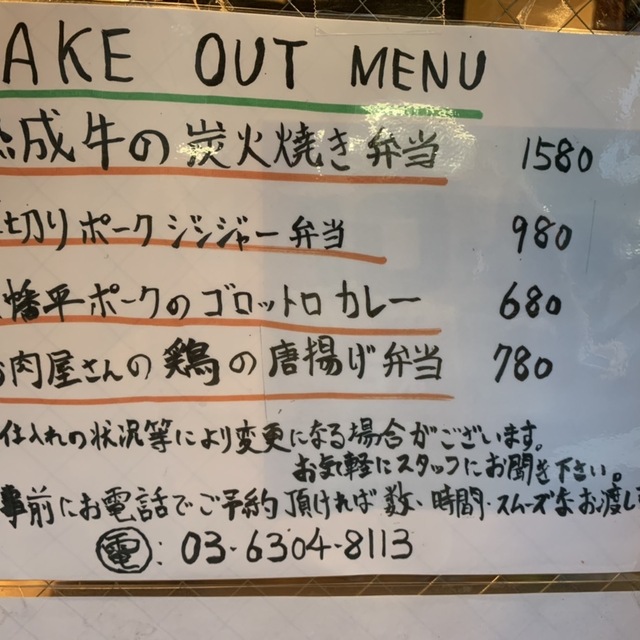 AKE OUT MENU
熟成牛の炭火焼き弁当 1580
切りポークジンジャー弁当 980
幡平ポークのゴロットロカレー 680
お肉屋さんの鶏の唐揚げ弁当 780
仕入れの状況等により変更になる場合がございます。
お気軽にスタッフにお聞き下さい。
事前にお電話でご予約頂ければ数・時間・スムーズなお渡し
電:03-6304-8113